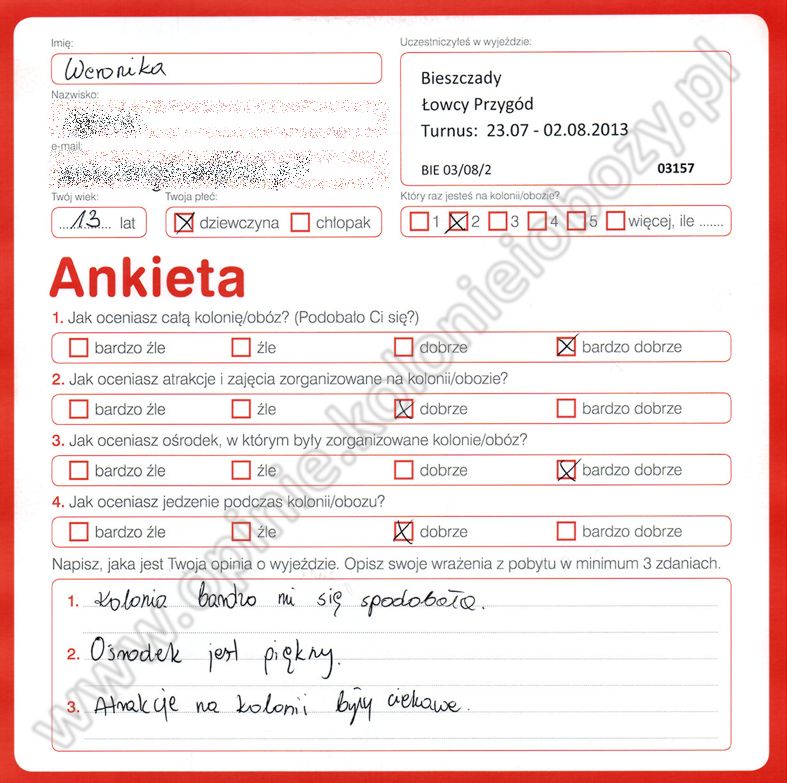 Imię:
Uczestniczyłeś w wyjeździe:
Weronika
Bieszczady
Łowcy Przygód
Turnus: 23.07 - 02.08.2013
BIE 03/08/2 03157
Nazwisko:
e-mail:
Twój wiek:
Twoja płeć:
Który raz jesteś na kolonii/obozie?
...13... lat
dziewczyna chłopak
1 2 3 4 5 więcej, ile .......
Ankieta
1. Jak oceniasz całą kolonię/obóz? (Podobało Ci się?)
bardzo źle źle dobrze bardzo dobrze
2. Jak oceniasz atrakcje i zajęcia zorganizowane na kolonii/obozie?
bardzo źle źle dobrze bardzo dobrze
3. Jak oceniasz ośrodek, w którym były zorganizowane kolonie/obóz?
bardzo źle źle dobrze bardzo dobrze
4. Jak oceniasz jedzenie podczas kolonii/obozu?
bardzo źle źle dobrze bardzo dobrze
Napisz, jaka jest Twoja opinia o wyjeździe. Opisz swoje wrażenia z pobytu w minimum 3 zdaniach.
1. Kolonia bardzo mi się spodobała.
2. Ośrodek jest piękny.
3. Atrakcje na kolonii były ciekawe.
www.opinie.kolonieiobozy.pl